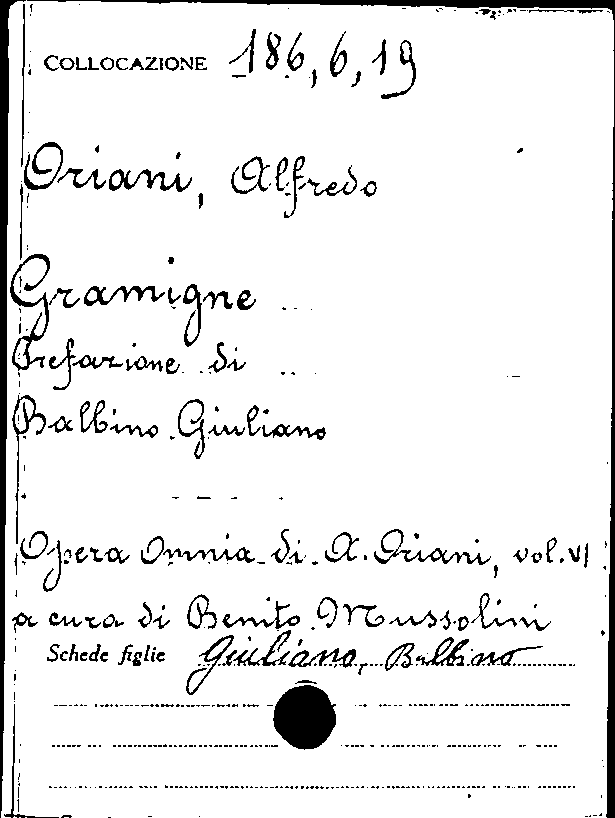 COLLOCAZIONE 186,6,19
Oriani, Alfredo
Gramigne
Prefazione di
Balbino Giuliano
Opera Omnia di A. Oriani, vol. VI
a cura di Benito Mussolini
Schede figlie Giuliano, Balbino